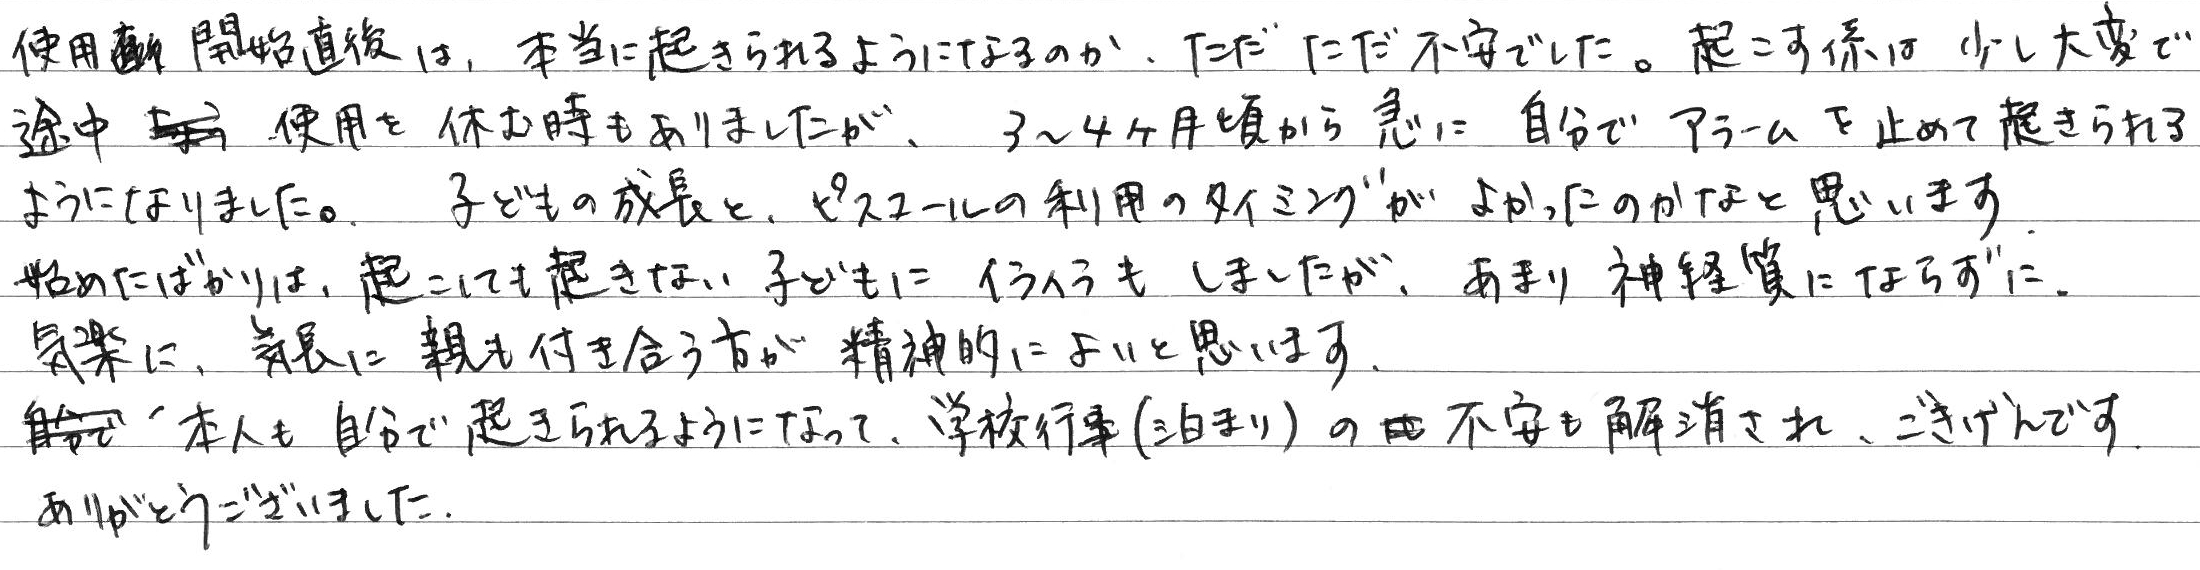 使用開始直後は、本当に起きられるようになるのか、ただただ不安でした。起こす係は少し大変で
途中 使用を休む時もありましたが、3〜4ヶ月頃から急に自分でアラームを止めて起きられる
ようになりました。子どもの成長と、ピスコールの利用のタイミングがよかったのかなと思います。
始めたばかりは、起こしても起きない子どもにイライラもしましたが、あまり神経質にならずに、
気楽に、気長に親も付き合う方が精神的によいと思います。
本人も自分で起きられるようになって、学校行事(泊まり)の不安も解消され、ごきげんです。
ありがとうございました。